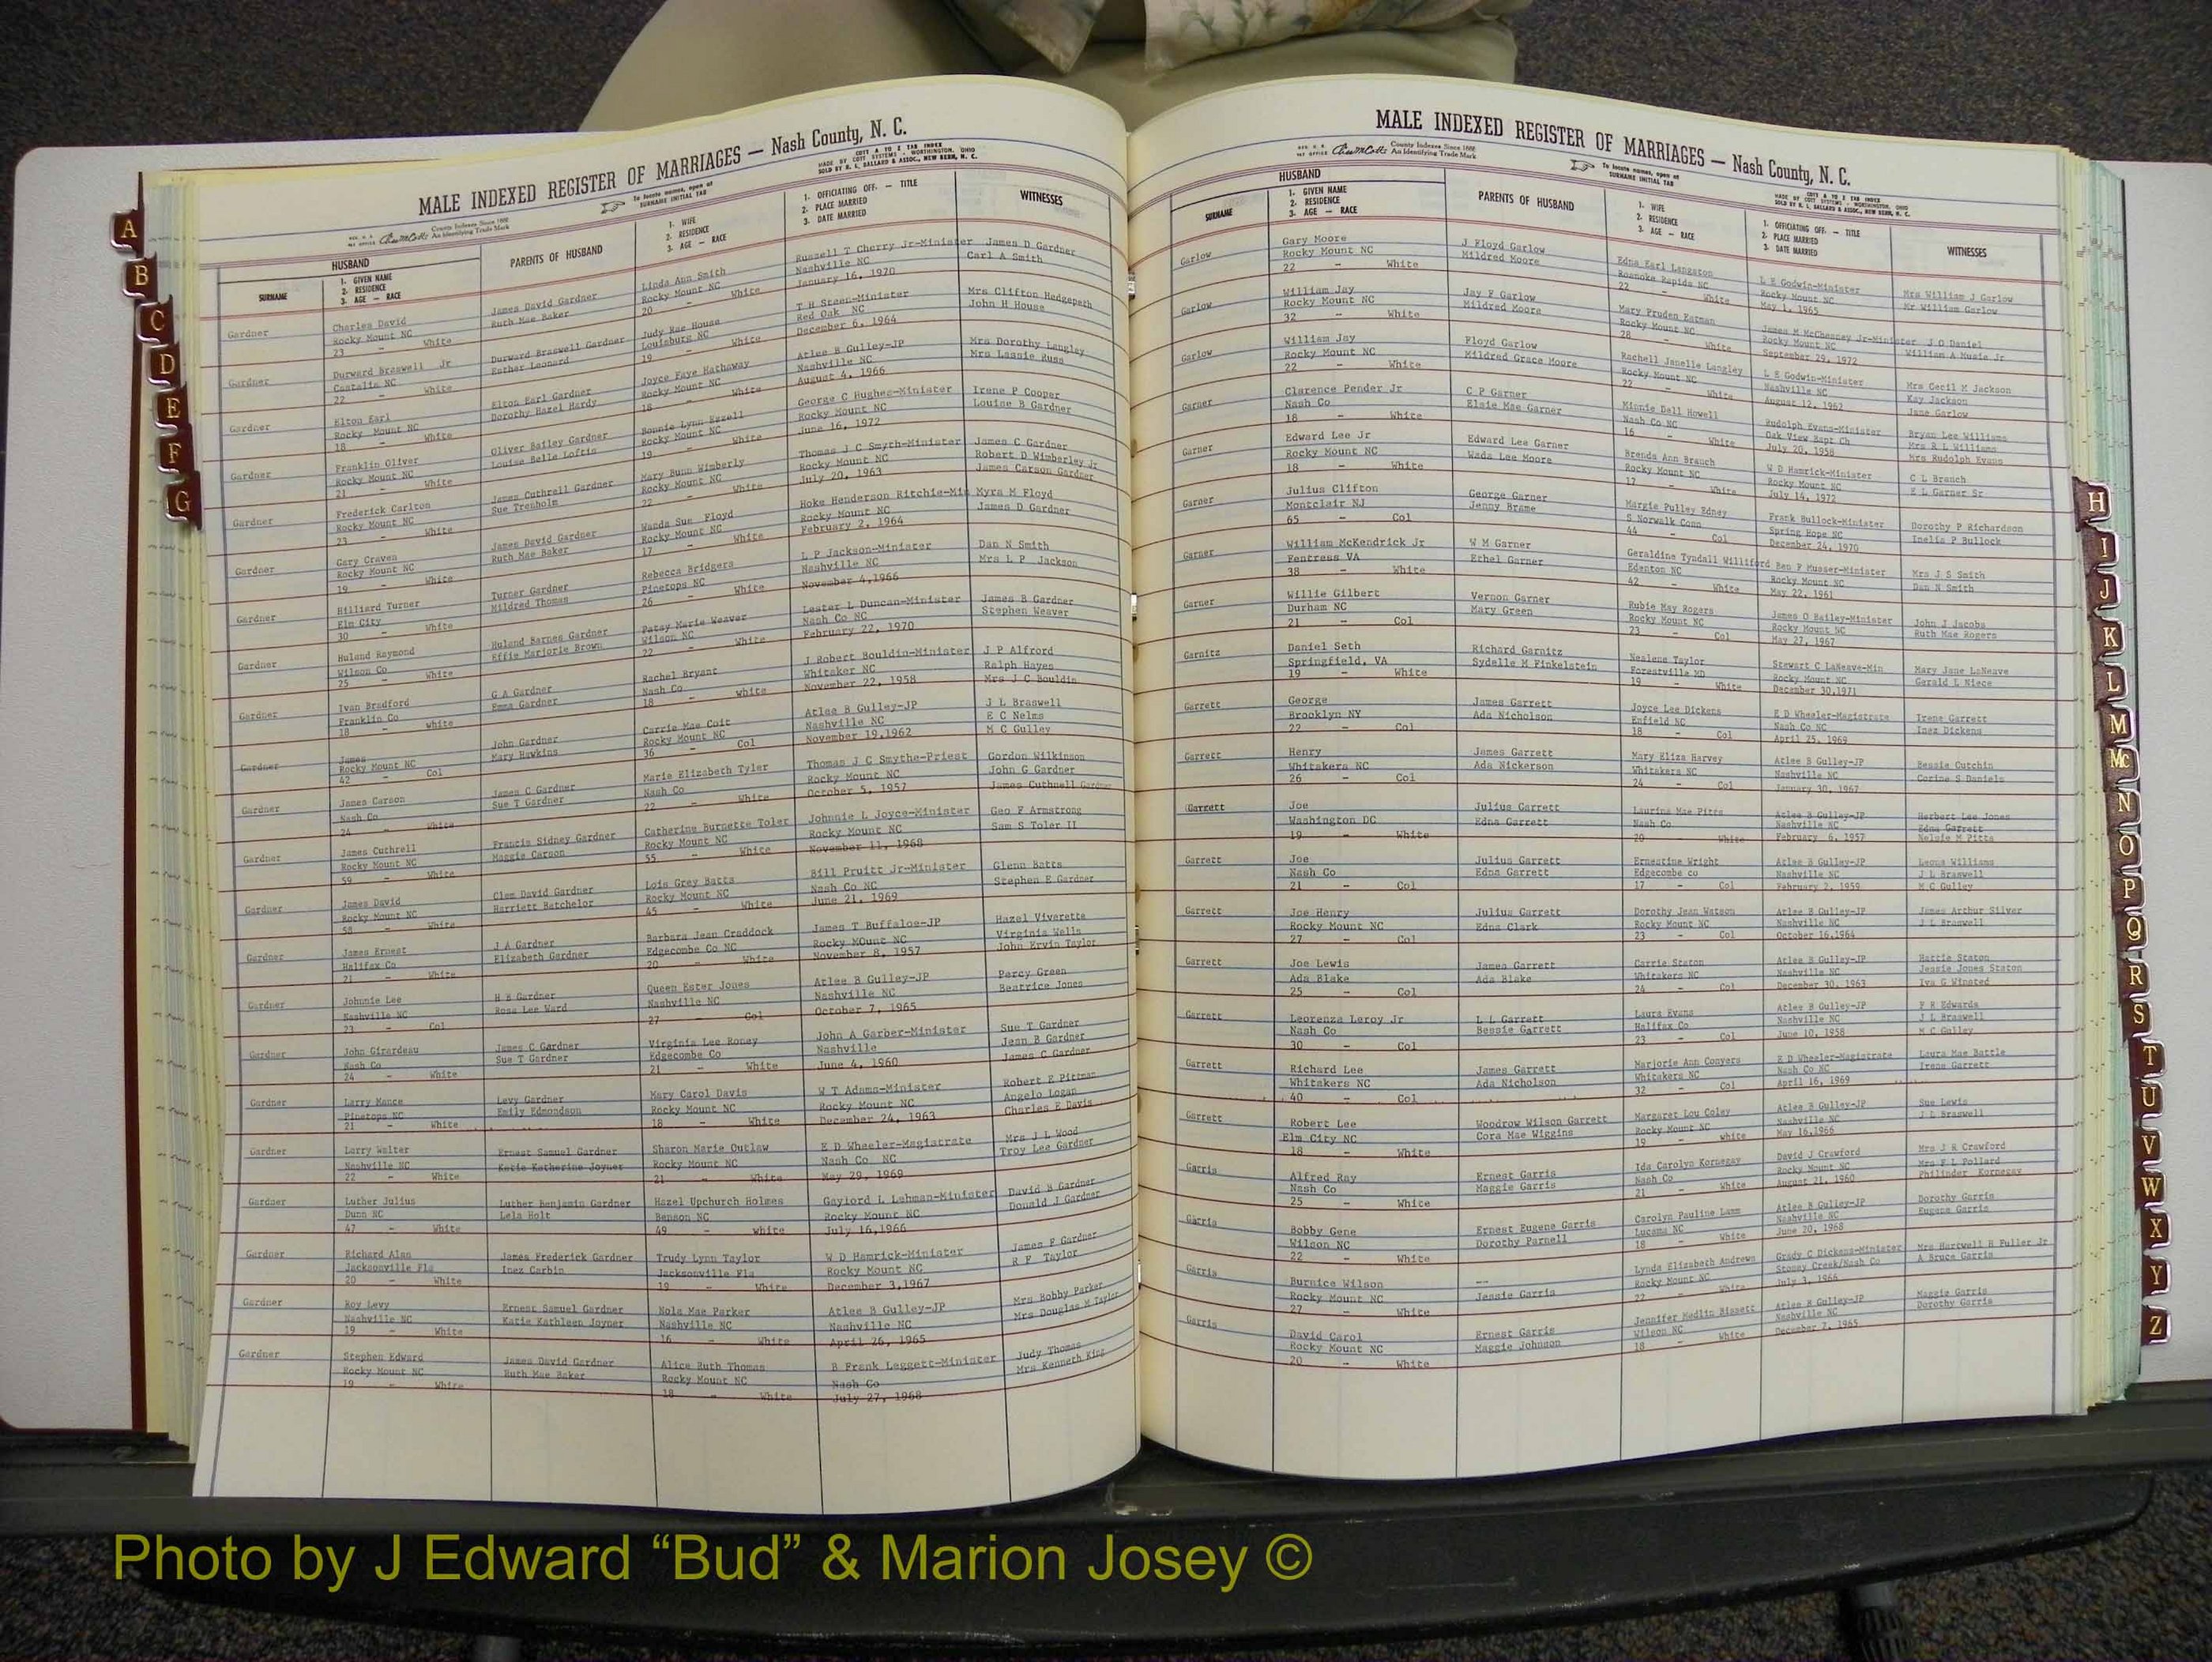 MALE INDEXED REGISTER OF MARRIAGES — Nash County, N. C.
County Indexes Since 1888
An Identifying Trade Mark
To locate names, open at
SURNAME INITIAL TAB
COTT A TO Z TAB INDEX
MADE BY COTT SYSTEMS - WORTHINGTON, OHIO
SOLD BY R. L. BALLARD & ASSOC., NEW BERN, N. C.
HUSBAND
SURNAME
1. GIVEN NAME
2. RESIDENCE
3. AGE — RACE
PARENTS OF HUSBAND
1. WIFE
2. RESIDENCE
3. AGE — RACE
1. OFFICIATING OFF. — TITLE
2. PLACE MARRIED
3. DATE MARRIED
WITNESSES
Gardner Charles David James David Gardner Linda Ann Smith Russell T Cherry Jr-Minister James D Gardner
Rocky Mount NC Ruth Mae Baker Rocky Mount NC Nashville NC Carl A Smith
23 - White 20 - White January 16, 1970
Gardner Durward Braswell Jr Durward Braswell Gardner Judy Rae House T H Steen-Minister Mrs Clifton Hedgepeth
Castalia NC Esther Leonard Louisburg NC Red Oak NC John H House
22 - White 19 - White December 6, 1964
Gardner Elton Earl Elton Earl Gardner Joyce Faye Hathaway Atlee B Gulley-JP Mrs Dorothy Langley
Rocky Mount NC Dorothy Hazel Hardy Rocky Mount NC Nashville NC Mrs Lassie Russ
18 - White 18 - White August 4, 1966
Gardner Franklin Oliver Oliver Bailey Gardner Bonnie Lynn Ezzell George C Hughes-Minister Irene P Cooper
Rocky Mount NC Louise Belle Loftis Rocky Mount NC Rocky Mount NC Louise B Gardner
21 - White 19 - White June 16, 1972
Gardner Frederick Carlton James Cuthrell Gardner Mary Bunn Wimberly Thomas J C Smyth-Minister James C Gardner
Rocky Mount NC Sue Trenholm Rocky Mount NC Rocky Mount NC Robert D Wimberley Jr
23 - White 22 - White July 20, 1963 James Carson Gardner
Gardner Gary Craven James David Gardner Wanda Sue Floyd Hoke Henderson Ritchie-Min Myra M Floyd
Rocky Mount NC Ruth Mae Baker Rocky Mount NC Rocky Mount NC James D Gardner
19 - White 17 - White February 2, 1964
Gardner Hilliard Turner Turner Gardner Rebecca Bridgers L P Jackson-Minister Dan N Smith
Elm City Mildred Thomas Pinetops NC Nashville NC Mrs L P Jackson
30 - White 26 - White November 4,1966
Gardner Huland Raymond Huland Barnes Gardner Patsy Marie Weaver Lester L Duncan-Minister James B Gardner
Wilson Co Effie Marjorie Brown Wilson NC Nash Co NC Stephen Weaver
25 - White 22 - White February 22, 1970
Gardner Ivan Bradford G A Gardner Rachel Bryant J Robert Bouldin-Minister J P Alford
Franklin Co Emma Gardner Nash Co Whitaker NC Ralph Hayes
18 - white 18 - white November 22, 1958 Mrs J C Bouldin
Gardner James John Gardner Carrie Mae Coit Atlee B Gulley-JP J L Braswell
Rocky Mount NC Mary Hawkins Rocky Mount NC Nashville NC E C Nelms
42 - Col 36 - Col November 19,1962 M C Gulley
Gardner James Carson James C Gardner Marie Elizabeth Tyler Thomas J C Smythe-Priest Gordon Wilkinson
Nash Co Sue T Gardner Nash Co Rocky Mount NC John G Gardner
24 - White 22 - White October 5, 1957 James Cuthnell Gardner
Gardner James Cuthrell Francis Sidney Gardner Catherine Burnette Toler Johnnie L Joyce-Minister Geo F Armstrong
Rocky Mount NC Maggie Carson Rocky Mount NC Rocky Mount NC Sam S Toler II
59 - White 55 - White November 11, 1968
Gardner James David Clem David Gardner Lois Grey Batts Bill Pruitt Jr-Minister Glenn Batts
Rocky Mount NC Harriett Batchelor Rocky Mount NC Nash Co NC Stephen E Gardner
58 - White 45 - White June 21, 1969
Gardner James Ernest J A Gardner Barbara Jean Craddock James T Buffaloe-JP Hazel Viverette
Halifax Co Elizabeth Gardner Edgecombe Co NC Rocky MOunt NC Virginia Wells
21 - White 20 - White November 8, 1957 John Ervin Taylor
Gardner Johnnie Lee H B Gardner Queen Ester Jones Atlee B Gulley-JP Percy Green
Nashville NC Rosa Lee Ward Nashville NC Nashville NC Beatrice Jones
23 - Col 27 - Col October 7, 1965
Gardner John Girardeau James C Gardner Virginia Lee Roney John A Garber-Minister Sue T Gardner
Nash Co Sue T Gardner Edgecombe Co Nashville Jean B Gardner
24 - White 21 - White June 4, 1960 James C Gardner
Gardner Larry Mence Levy Gardner Mary Carol Davis W T Adams-Minister Robert E Pittman
Pinetops NC Emily Edmondson Rocky Mount NC Rocky Mount NC Angelo Logan
21 - White 18 - White December 24, 1963 Charles E Davis
Gardner Larry Walter Ernest Samuel Gardner Sharon Marie Outlaw E D Wheeler-Magistrate Mrs J L Wood
Nashville NC Katie Katherine Joyner Rocky Mount NC Nash Co NC Troy Lee Gardner
22 - White 21 - White May 29, 1969
Gardner Luther Julius Luther Benjamin Gardner Hazel Upchurch Holmes Gaylord L Lehman-Minister David B Gardner
Dunn NC Lela Holt Benson NC Rocky Mount NC Donald J Gardner
47 - White 49 - white July 16,1966
Gardner Richard Alan James Frederick Gardner Trudy Lynn Taylor W D Hamrick-Minister James F Gardner
Jacksonville Fla Inez Corbin Jacksonville Fla Rocky Mount NC R F Taylor
20 - White 19 - White December 3,1967
Gardner Roy Levy Ernest Samuel Gardner Nola Mae Parker Atlee B Gulley-JP Mrs Bobby Parker
Nashville NC Katie Kathleen Joyner Nashville NC Nashville NC Mrs Douglas M Taylor
19 - White 16 - White April 26, 1965
Gardner Stephen Edward James David Gardner Alice Ruth Thomas B Frank Leggett-Minister Judy Thomas
Rocky Mount NC Ruth Mae Baker Rocky Mount NC Nash Co Mrs Kenneth King
19 - White 18 - White July 27, 1968
MALE INDEXED REGISTER OF MARRIAGES — Nash County, N. C.
County Indexes Since 1888
An Identifying Trade Mark
To locate names, open at
SURNAME INITIAL TAB
COTT A TO Z TAB INDEX
SOLD BY R. L. BALLARD & ASSOC., NEW BERN, N. C.
HUSBAND
SURNAME
1. GIVEN NAME
2. RESIDENCE
3. AGE — RACE
PARENTS OF HUSBAND
1. WIFE
2. RESIDENCE
3. AGE — RACE
1. OFFICIATING OFF. — TITLE
2. PLACE MARRIED
3. DATE MARRIED
WITNESSES
Garlow Gary Moore J Floyd Garlow Edna Earl Langston L E Godwin-Minister Mrs William J Garlow
Rocky Mount NC Mildred Moore Roanoke Rapids NC Rocky Mount NC Mr William Garlow
22 - White 22 - White May 1, 1965
Garlow William Jay Jay F Garlow Mary Pruden Eatman James M McChesney Jr-Minister J O Daniel
Rocky Mount NC Mildred Moore Rocky Mount NC Rocky Mount NC William A Musie Jr
32 - White 28 - White September 29, 1972
Garlow William Jay Floyd Garlow Rachell Janelle Langley L E Godwin-Minister Mrs Cecil M Jackson
Rocky Mount NC Mildred Grace Moore Rocky Mount NC Nashville NC Kay Jackson
22 - White 22 - White August 12, 1962 Jane Garlow
Garner Clarence Pender Jr C P Garner Minnie Dell Howell Rudolph Evans-Minister Bryan Lee Williams
Nash Co Elsie Mae Garner Nash Co NC Oak View Bapt Ch Mrs R L Williams
18 - White 16 - White July 20, 1958 Mrs Rudolph Evans
Garner Edward Lee Jr Edward Lee Garner Brenda Ann Branch W D Hamrick-Minister C L Branch
Rocky Mount NC Wada Lee Moore Rocky Mount NC Rocky Mount NC E L Garner Sr
18 - White 17 - White July 14, 1972
Garner Julius Clifton George Garner Margie Pulley Edney Frank Bullock-Minister Dorothy P Richardson
Montclair NJ Jenny Brame S Norwalk Conn Spring Hope NC Inelia P Bullock
65 - Col 44 - Col December 24, 1970
Garner William McKendrick Jr W M Garner Geraldine Tyndall Williford Ben F Musser-Minister Mrs J S Smith
Fentress VA Ethel Garner Edenton NC Rocky Mount NC Dan N Smith
38 - White 42 - White May 22, 1961
Garner Willie Gilbert Vernon Garner Rubie May Rogers James O Bailey-Minister John J Jacobs
Durham NC Mary Green Rocky Mount NC Rocky Mount NC Ruth Mae Rogers
21 - Col 23 - Col May 27, 1967
Garnitz Daniel Seth Richard Garnitz Nealene Taylor Stewart C LaNeave-Min Mary Jane LaNeave
Springfield, VA Sydelle M Finkelstein Forestville MD Rocky Mount NC Garald L Niece
19 - White 19 - White December 30,1971
Garrett George James Garrett Joyce Lee Dickens E D Wheeler-Magistrate Irene Garrett
Brooklyn NY Ada Nicholson Enfield NC Nash Co NC Inez Dickens
22 - Col 18 - Col April 25, 1969
Garrett Henry James Garrett Mary Eliza Harvey Atlee B Gulley-JP Bessie Cutchin
Whitakers NC Ada Nickerson Whitakers NC Nashville NC Corine S Daniels
26 - Col 24 - Col January 30, 1967
Garrett Joe Julius Garrett Laurina Mae Pitts Atlee B Gulley-JP Herbert Lee Jones
Washington DC Edna Garrett Nash Co Nashville NC Edna Garrett
19 - White 20 - White February 6, 1957 Nelsie M Pitts
Garrett Joe Julius Garrett Ernestine Wright Atlee B Gulley-JP Leona Williams
Nash Co Edna Garrett Edgecombe co Nashville NC J L Braswell
21 - Col 17 - Col February 2, 1959 M C Gulley
Garrett Joe Henry Julius Garrett Dorothy Jean Watson Atlee B Gulley-JP James Arthur Silver
Rocky Mount NC Edna Clark Rocky Mount NC Nashville NC J L Braswell
27 - Col 23 - Col October 16,1964
Garrett Joe Lewis James Garrett Carrie Staton Atlee B Gulley-JP Hattie Staton
Ada Blake Ada Blake Whitakers NC Nashville NC Jessie Jones Staton
25 - Col 24 - Col December 30, 1963 Iva G Winsted
Garrett Leorenza Leroy Jr L L Garrett Laura Evans Atlee B Gulley-JP F R Edwards
Nash Co Bessie Garrett Halifax Co Nashville NC J L Braswell
30 - Col 23 - Col June 10, 1958 M C Gulley
Garrett Richard Lee James Garrett Marjorie Ann Conyers E D Wheeler-Magistrate Laura Mae Battle
Whitakers NC Ada Nicholson Whitakers NC Nash Co NC Irene Garrett
40 - Col 32 - Col April 16, 1969
Garrett Robert Lee Woodrow Wilson Garrett Margaret Lou Coley Atlee B Gulley-JP Sue Lewis
Elm City NC Cora Mae Wiggins Rocky Mount NC Nashville NC J L Braswell
18 - White 19 - white May 16,1966
Garris Alfred Ray Ernest Garris Ida Carolyn Kornegay David J Crawford Mrs J R Crawford
Nash Co Maggie Garris Nash Co Rocky Mount NC Mrs F L Pollard
25 - White 21 - White August 21, 1960 Philinder Kornegay
Garris Bobby Gene Ernest Eugene Garris Carolyn Pauline Lamm Atlee B Gulley-JP Dorothy Garris
Wilson NC Dorothy Parnell Lucama NC Nashville NC Eugene Garris
22 - White 18 - White June 20, 1968
Garris Burnice Wilson -- Lynda Elizabeth Andrews Grady C Dickens-Minister Mrs Hartwell H Fuller Jr
Rocky Mount NC Jessie Garris Rocky Mount NC Stoney Creek/Nash Co A Bruce Garris
27 - White 22 - White July 3, 1966
Garris David Carol Ernest Garris Jennifer Medlin Bissett Atlee B Gulley-JP Maggie Garris
Rocky Mount NC Maggie Johnson Wilson NC Nashville NC Dorothy Garris
20 - White 18 - White December 7, 1965
A
B
C
D
E
F
G
H
I
J
K
L
M
Mc
N
O
P
Q
R
S
T
U
V
W
X
Y
Z
Photo by J Edward “Bud” & Marion Josey ©